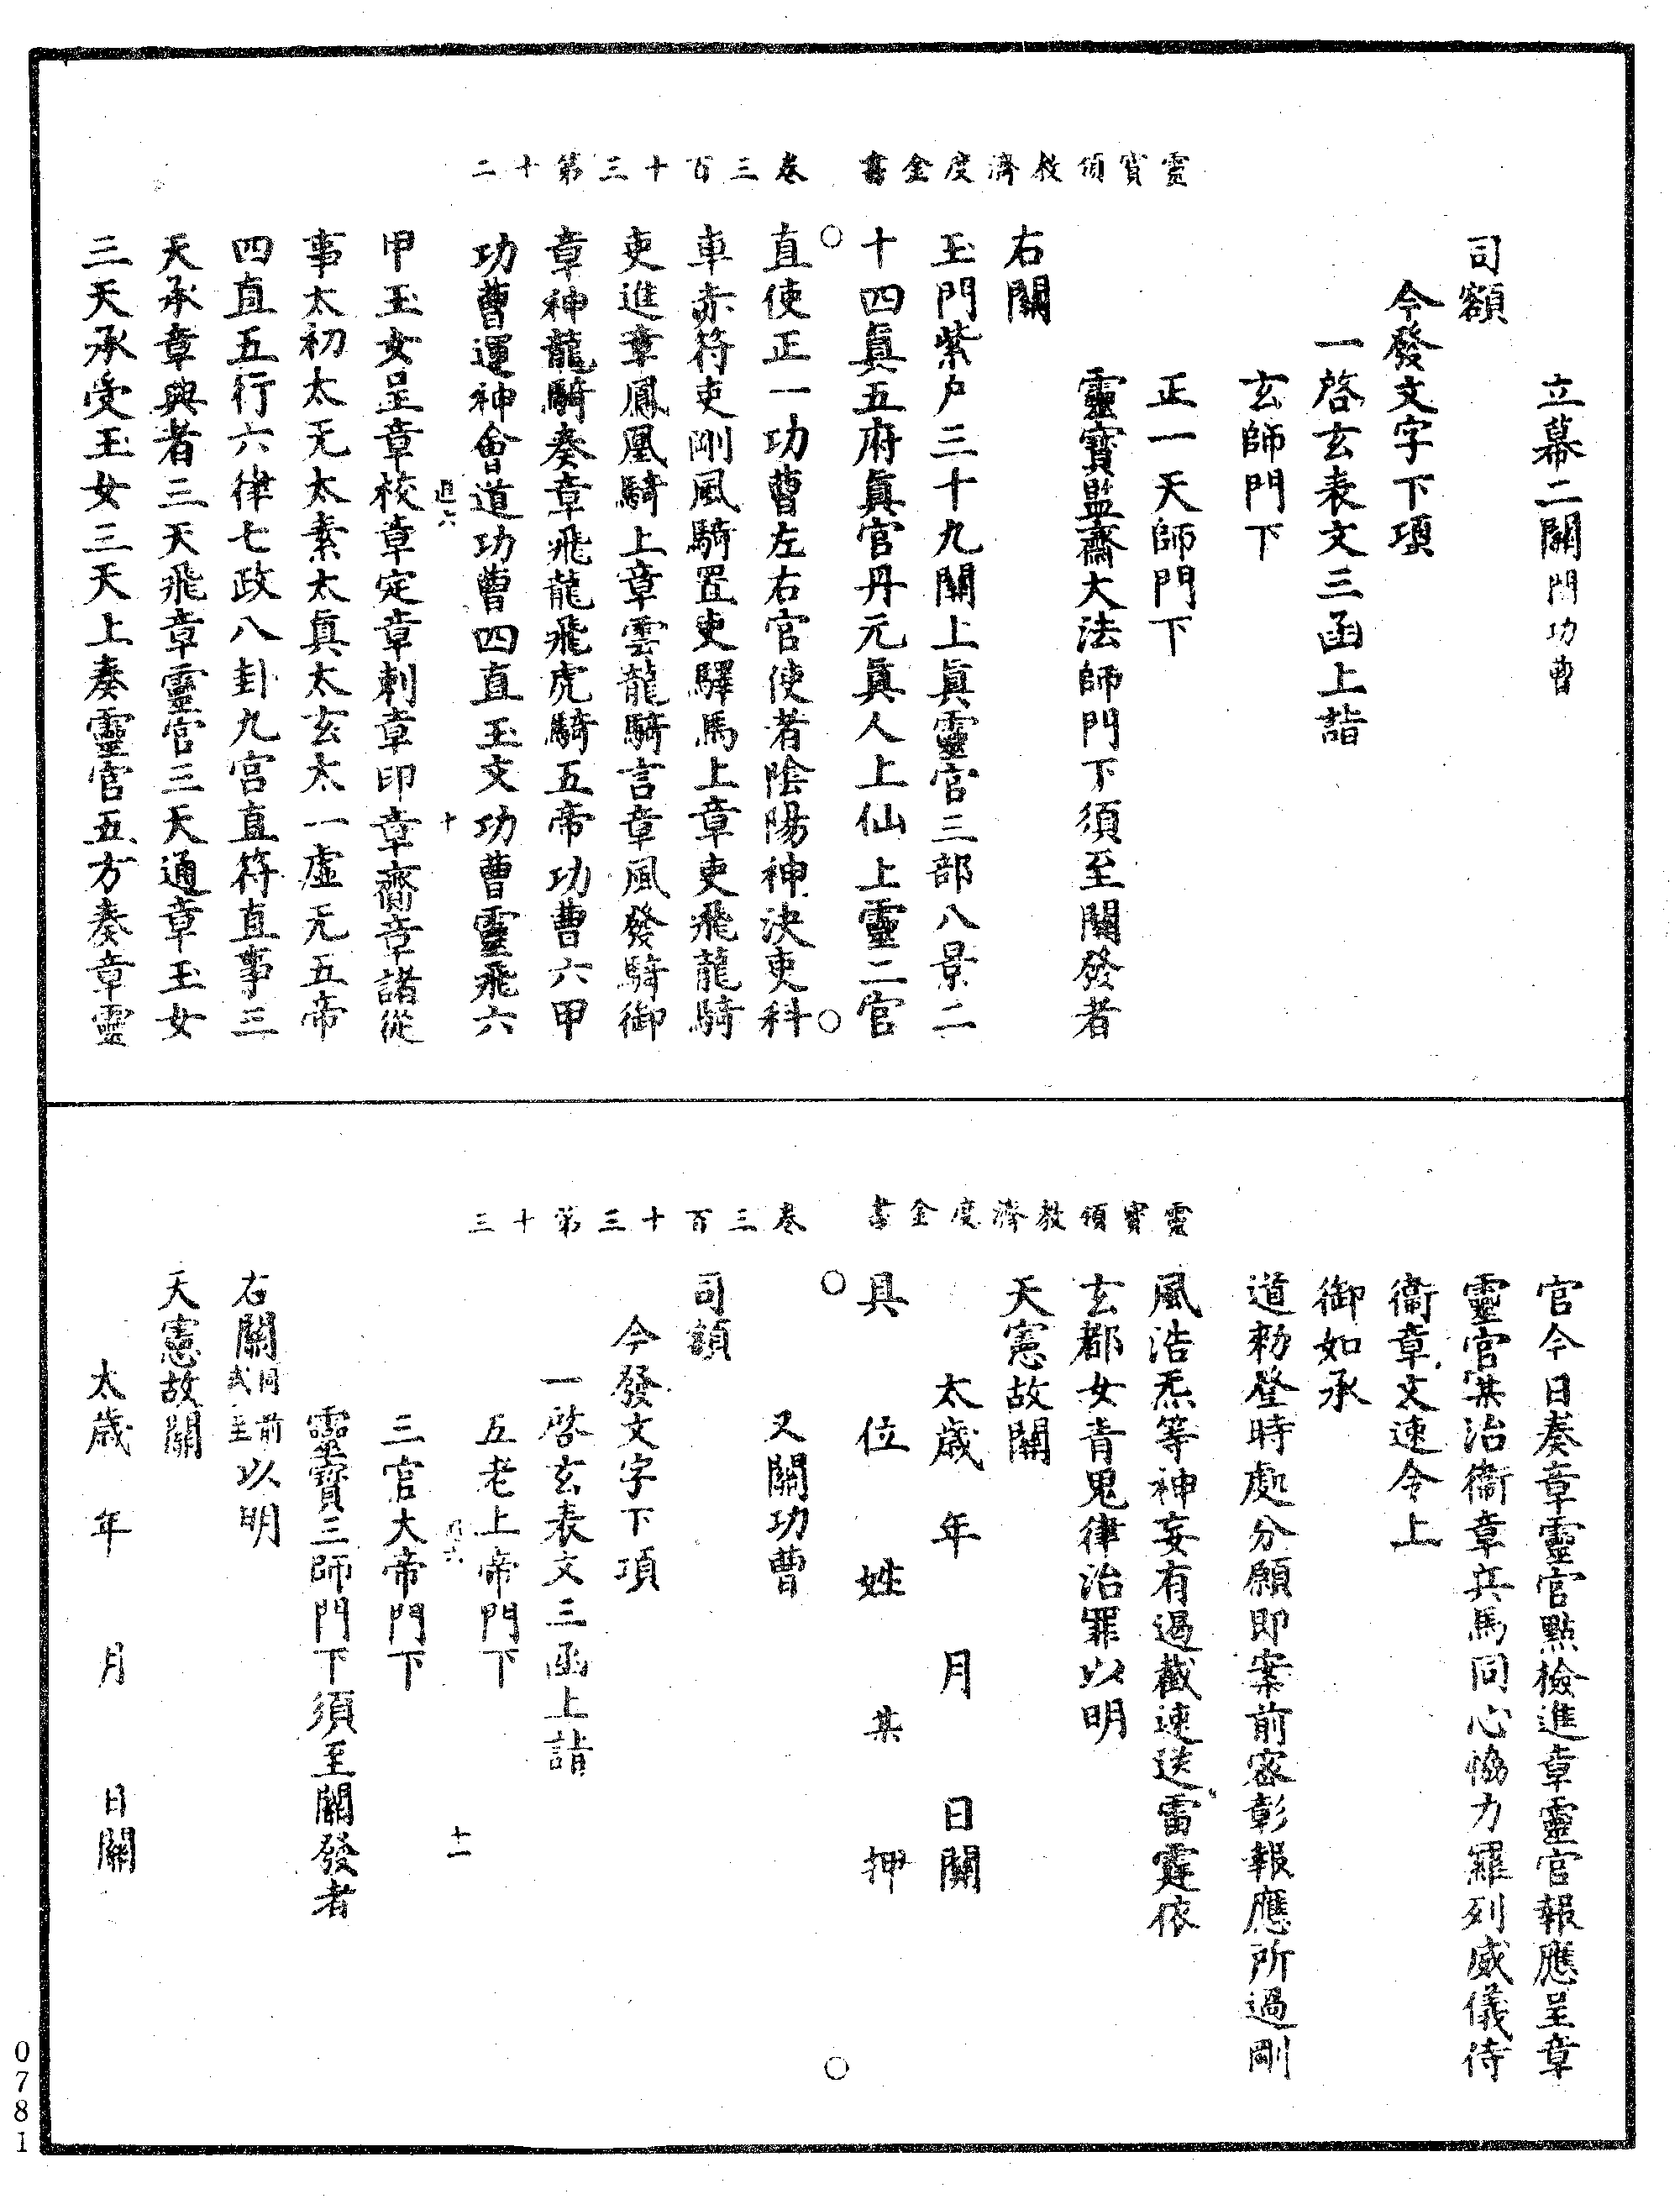 靈寶領教濟度金書 卷三百十三第十二
立幕二關關功曹
司額
今發文字下項
一啓玄表文三函上詣
玄師門下
正一天師門下
靈寶監齋大法師門下須至關發者
右關
玉門紫户三十九關上眞靈官三部八景二
十四眞五府眞官丹元眞人上仙上靈二官
直使正一功曹左右官使者陰陽神決吏科
車赤符吏剛風騎置吏驛馬上章吏飛龍騎
吏進章鳳凰騎上章雲龍騎言章風發騎御
章神龍騎奏章飛龍飛虎騎五帝功曹六甲
功曹運神會道功曹四直玉文功曹靈飛六
十
甲玉女呈章校章定章刺章印章齋章諸從
事太初太无太素太眞太玄太一虛无五帝
四直五行六律七政八卦九宫直符直事三
天承章典者三天飛章靈官三天通章玉女
三天承受玉女三天上奏靈官五方奏章靈
靈寶領教濟度金書 卷三百十三第十三
官今日奏章靈官點檢進章靈官報應呈章
靈官某治衞章兵馬同心恊力羅列威儀侍
衞章文速令上
御如承
道勑登時處分願即案前密彰報應所過剛
風浩炁等神妄有遏截速送雷霆依
玄都女青鬼律治罪以明
天憲故關
太歲 年 月 日關
具 位 姓 某 押
又關功曹
司額
今發文字下項
一啓玄表文三函上詣
五老上帝門下
十一
三官大帝門下
靈寶三師門下須至關發者
右關同前式至以明
天憲故關
太歲 年 月 日關
0781